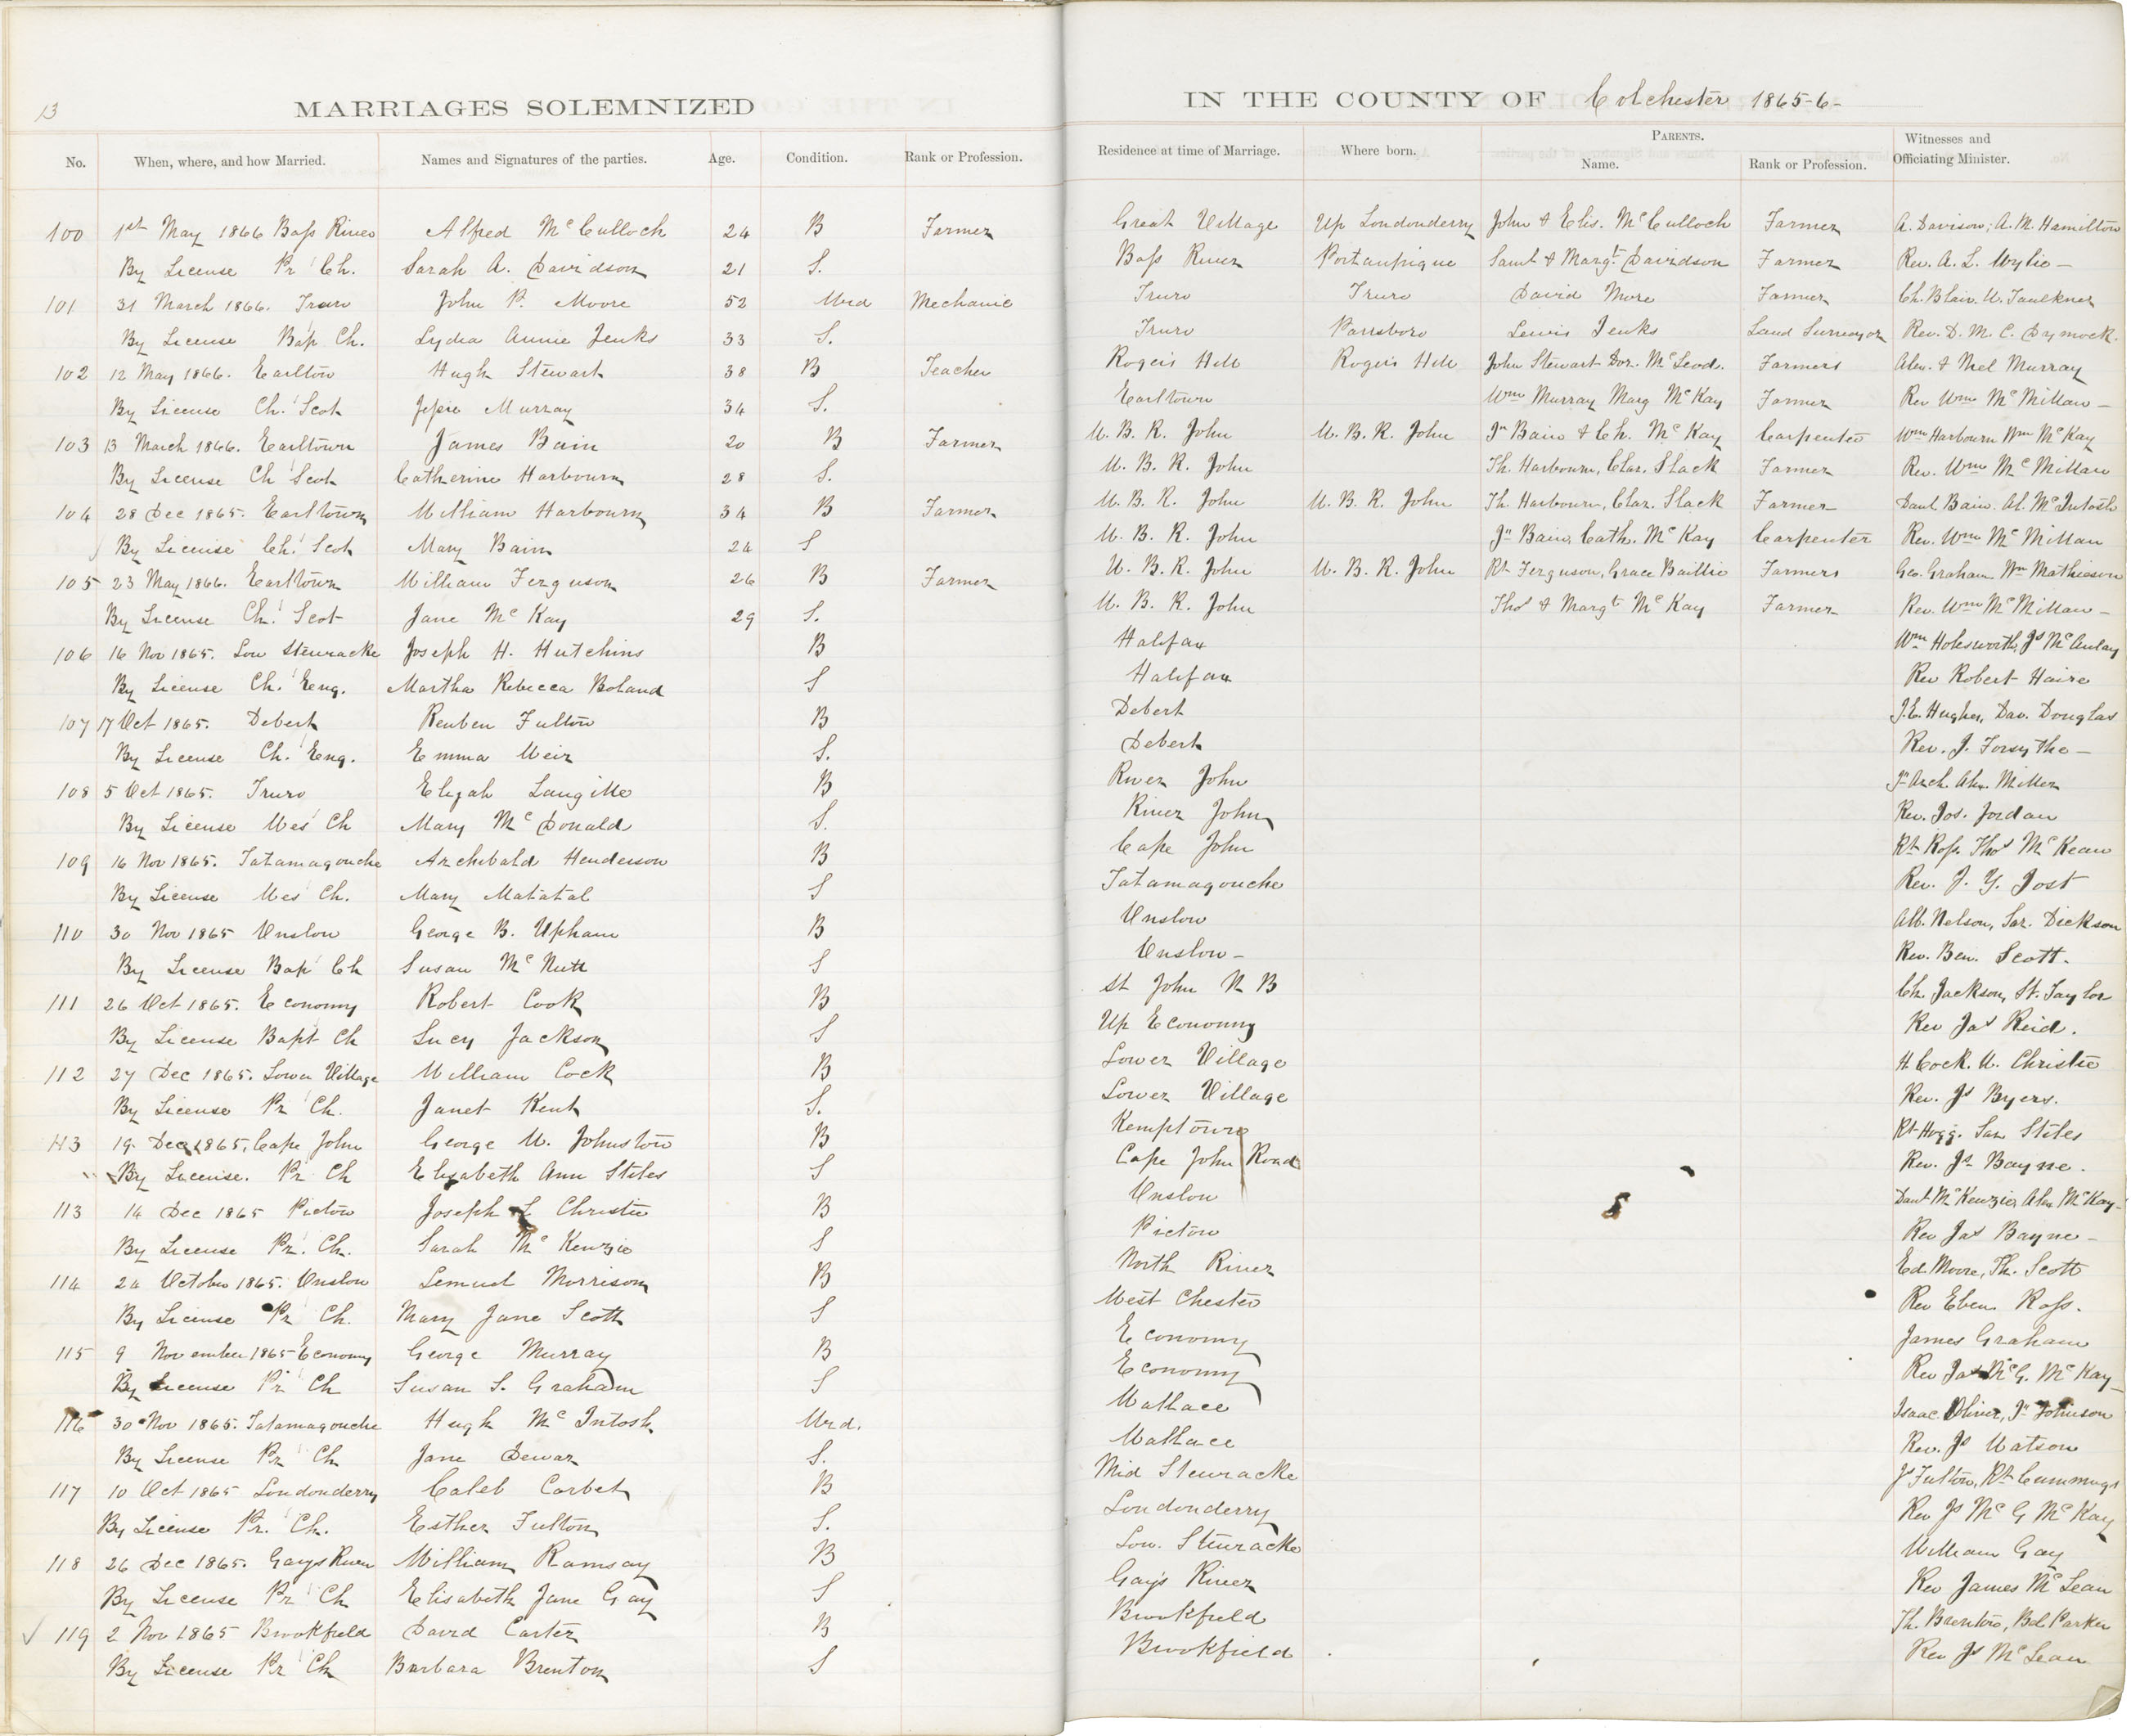 13
MARRIAGES SOLEMNIZED
IN THE COUNTY OF Colchester 1865-6-
No. When, where, and how Married. Names and Signatures of the parties. Age. Condition. Rank or Profession. Residence at time of Marriage. Where born. PARENTS. Name. Rank or Profession. Witnesses and Officiating Minister.
100 1st May 1866 Bass River Alfred McCulloch 24 B Farmer Great Village Up Londonderry John & Elis. McCulloch Farmer A. Davison; A. M. Hamilton
By License Pr Ch. Sarah A. Davidson 21 S. Bass River Portaupique Saml & Margt Davidson Farmer Rev. A. L. Wylie -
101 31 March 1866. Truro John P. Moore 52 Wid Mechanic Truro Truro David More Farmer Ch. Blair. W. Faulkner
By License Bap Ch. Lydia Annie Jenks 33 S. Truro Parrsboro Lewis Jenks Land Surveyor Rev. D. M. C. Dymock.
102 12 May 1866. Earlton Hugh Stewart 38 B Teacher Rogers Hill Rogers Hill John Stewart Dor. McLeod. Farmers Alex. & Nel Murray
By License Ch. Scot Jessie Murray 34 S. Earltown Wm Murray Marg McKay Farmer Rev Wm McMillan -
103 13 March 1866. Earltown James Bain 20 B Farmer W. B. R. John W. B. R. John Jn Bain & Ch. McKay Carpenter Wm Harbourn Wm McKay
By License Ch Scot Catherine Harbourn 28 S. W. B. R. John Th. Harbourn, Char. Slack Farmer Rev. Wm McMillan
104 28 Dec 1865. Earltown William Harbourn 34 B Farmer W. B. R. John W. B. R. John Th. Harbourn, Char. Slack Farmer Danl Bain. Al. McIntosh
By License Ch. Scot Mary Bain 24 S W. B. R. John Jn Bain, Cath. McKay Carpenter Rev. Wm McMillan
105 23 May 1866. Earltown William Ferguson 26 B Farmer W. B. R. John W. B. R. John Rt Ferguson, Grace Baillie Farmers Geo. Graham Wm Mathieson
By License Ch. Scot Jane McKay 29 S. W. B. R. John Thos & Margt McKay Farmer Rev. Wm McMillan -
106 16 Nov 1865. Low Stewiacke Joseph H. Hutchins B Halifax Wm Holesworth, Js McAulay
By License Ch. Eng. Martha Rebecca Boland S Halifax Rev Robert Haire
107 17 Oct 1865. Debert Reuben Fulton B Debert J. E. Hughes, Dav. Douglas
By License Ch. Eng. Emma Weir S. Debert Rev. J. Forsythe -
108 5 Oct 1865. Truro Elijah Langille B River John Jn Arch. Alex. Miller
By License Wes Ch Mary McDonald S. River John Rev. Jos. Jordan
109 16 Nov 1865. Tatamagouche Archibald Henderson B Cape John Rt Ross Thos McKean
By License Wes Ch. Mary Matatal S Tatamagouche Rev. J. Y. Jost
110 30 Nov 1865 Onslow George B. Upham B Onslow Alb. Nelson, Sar. Dickson
By License Bap Ch Susan McNutt S Onslow - Rev. Ben. Scott.
111 26 Oct 1865. Economy Robert Cook B St John N B Ch. Jackson, St. Taylor
By License Bapt Ch Lucy Jackson S Up Economy Rev Jas Reid.
112 27 Dec 1865. Lower Village William Cock B Lower Village H. Cock. W. Christie
By License Pr Ch. Janet Kent S. Lower Village Rev. Js Byers.
113 19 Dec 1865, Cape John George W. Johnston B Kemptown Rt Hogg. Sam Stiles
By License. Pr Ch Elisabeth Ann Stiles S Cape John Road Rev. Js Bayne.
113 14 Dec 1865 Pictou Joseph L Christie B Onslow Danl McKenzie, Alex McKay -
By License Pr. Ch. Sarah McKenzie S Pictou Rev Jas Bayne -
114 24 October 1865. Onslow Lemuel Morrison B North River Ed. Moore, Th. Scott
By License Pr Ch. Mary Jane Scott S West Chester Rev Eben Ross.
115 9 November 1865 Economy George Murray B Economy James Graham
By License Pr Ch Susan S. Graham S Economy Rev Jas McG. McKay -
116 30 Nov 1865. Tatamagouche Hugh McIntosh Wid. Wallace Isaac Oliver, Jn Johnson
By License Pr Ch Jane Dewar S. Wallace Rev. Js Watson
117 10 Oct 1865 Londonderry Caleb Corbet B Mid Stewiacke Js Fulton, Rt Cummings
By License Pr. Ch. Esther Fulton S. Londonderry Rev Js McG McKay
118 26 Dec 1865. Gays River William Ramsay B Low. Stewiacke William Gay
By License Pr Ch Elisabeth Jane Gay S Gay's River Rev James McLean
119 2 Nov 1865 Brookfield David Carter B Brookfield Th. Brenton, Bel Parker
By License Pr Ch Barbara Brenton S Brookfield Rev Js McLean